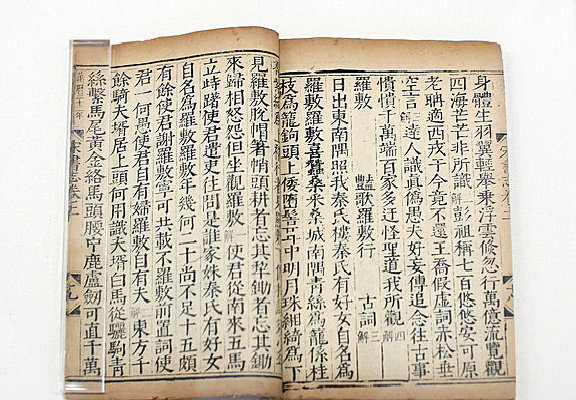 身體生羽翼輕舉乘浮雲倐忽行萬億流覽觀
四海茫茫非所識解二彭祖稱七百悠悠安可原
老聃適西戎于今竟不還王喬假虛詞赤松垂
空言解三達人識真僞愚夫好妄傳追念往古事
憒憒千萬端百家多迂怪聖道我所觀四解
羅敷 豔歌羅敷行 古詞三解
日出東南隅照我秦氏樓秦氏有好女自名為
羅敷羅敷喜蠶桑采桑城南隅青絲為籠係桂
枝為籠鉤頭上倭墮髻耳中明月珠緗綺為下
見羅敷脫帽著帩頭耕者忘其犂鋤者忘其鋤
來歸相怒怨但坐觀羅敷解一使君從南來五馬
立踟躇使君遣吏往問是誰家姝秦氏有好女
自名為羅敷羅敷年幾何二十尚不足十五頗
有餘使君謝羅敷寧可共載不羅敷前置詞使
君一何愚使君自有婦羅敷自有夫解二東方千
餘騎夫壻居上頭何用識夫壻白馬從驪駒青
絲繫馬尾黃金絡馬頭腰中鹿盧劒可直千萬
宋書志卷十一